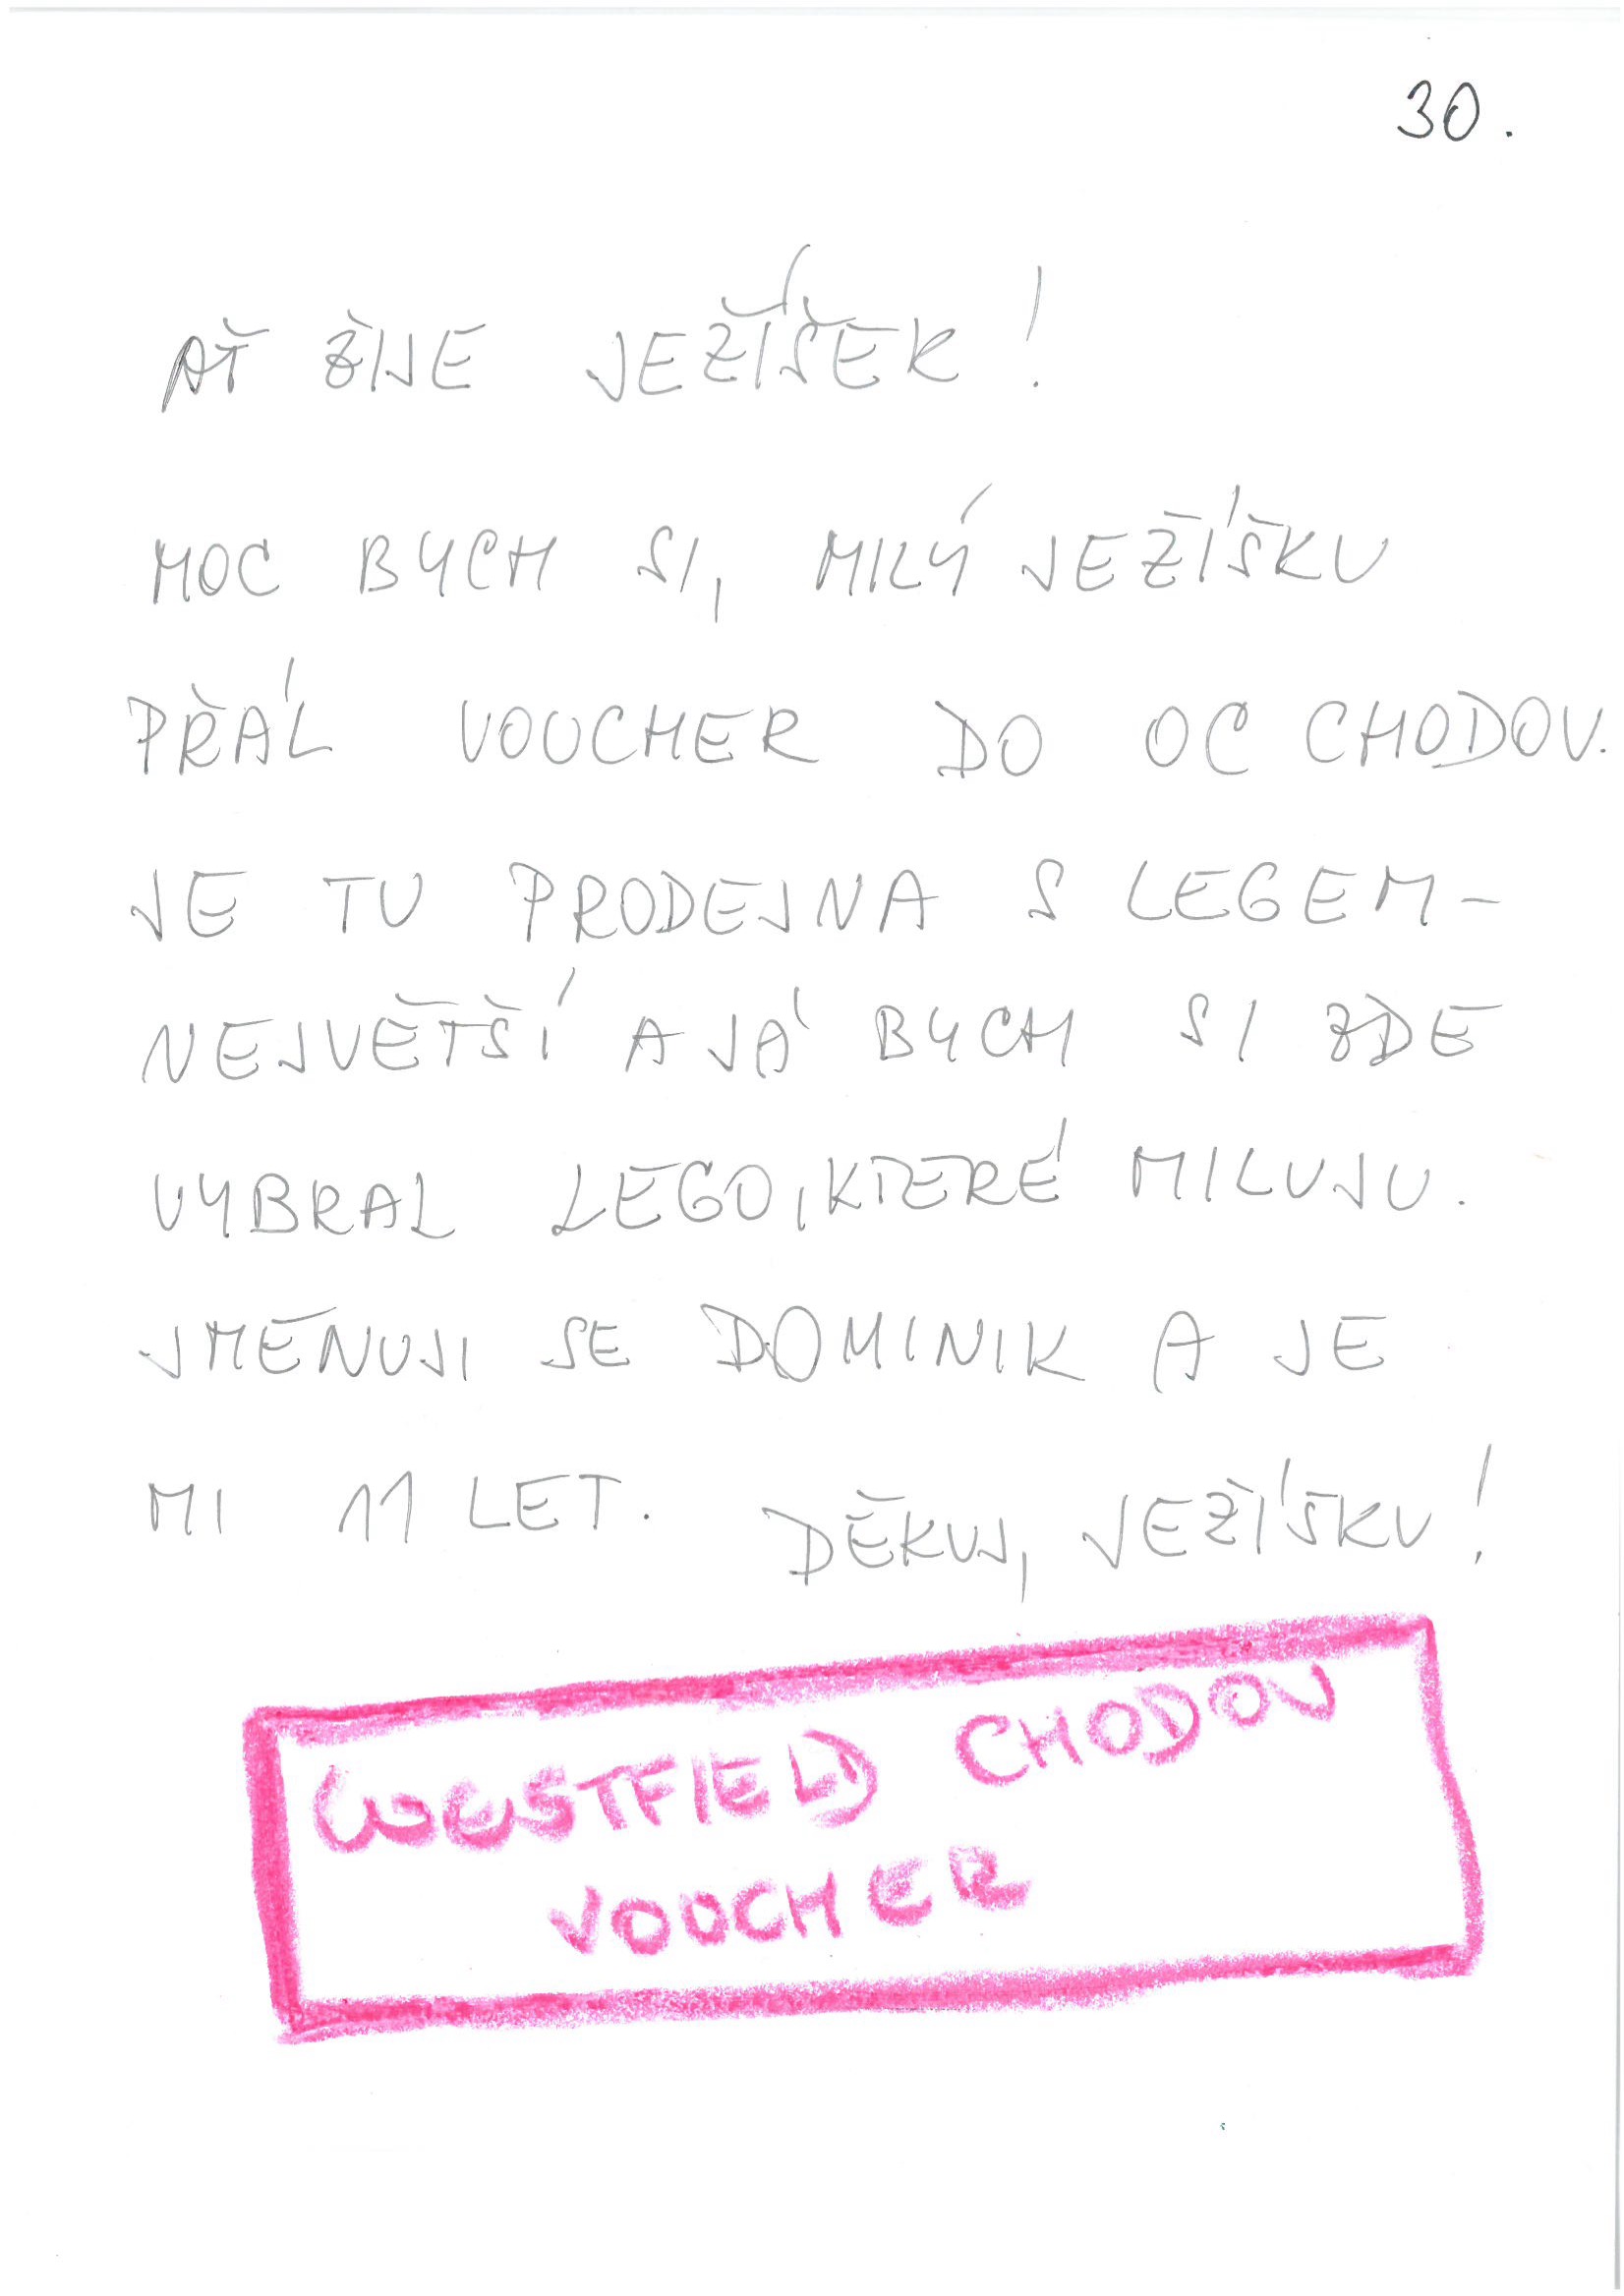 30.
AŤ ŽIJE JEŽÍŠEK!
MOC BYCH SI, MILÝ JEŽÍŠKU
PŘÁL VOUCHER DO OC CHODOV.
JE TU PRODEJNA S LEGEM-
NEJVĚTŠÍ A JÁ BYCH SI ZDE
VYBRAL LEGO, KTERÉ MILUJU.
JMENUJI SE DOMINIK A JE
MI 11 LET. DĚKUJ, JEŽÍŠKU!
WESTFIELD CHODOV
VOUCHER